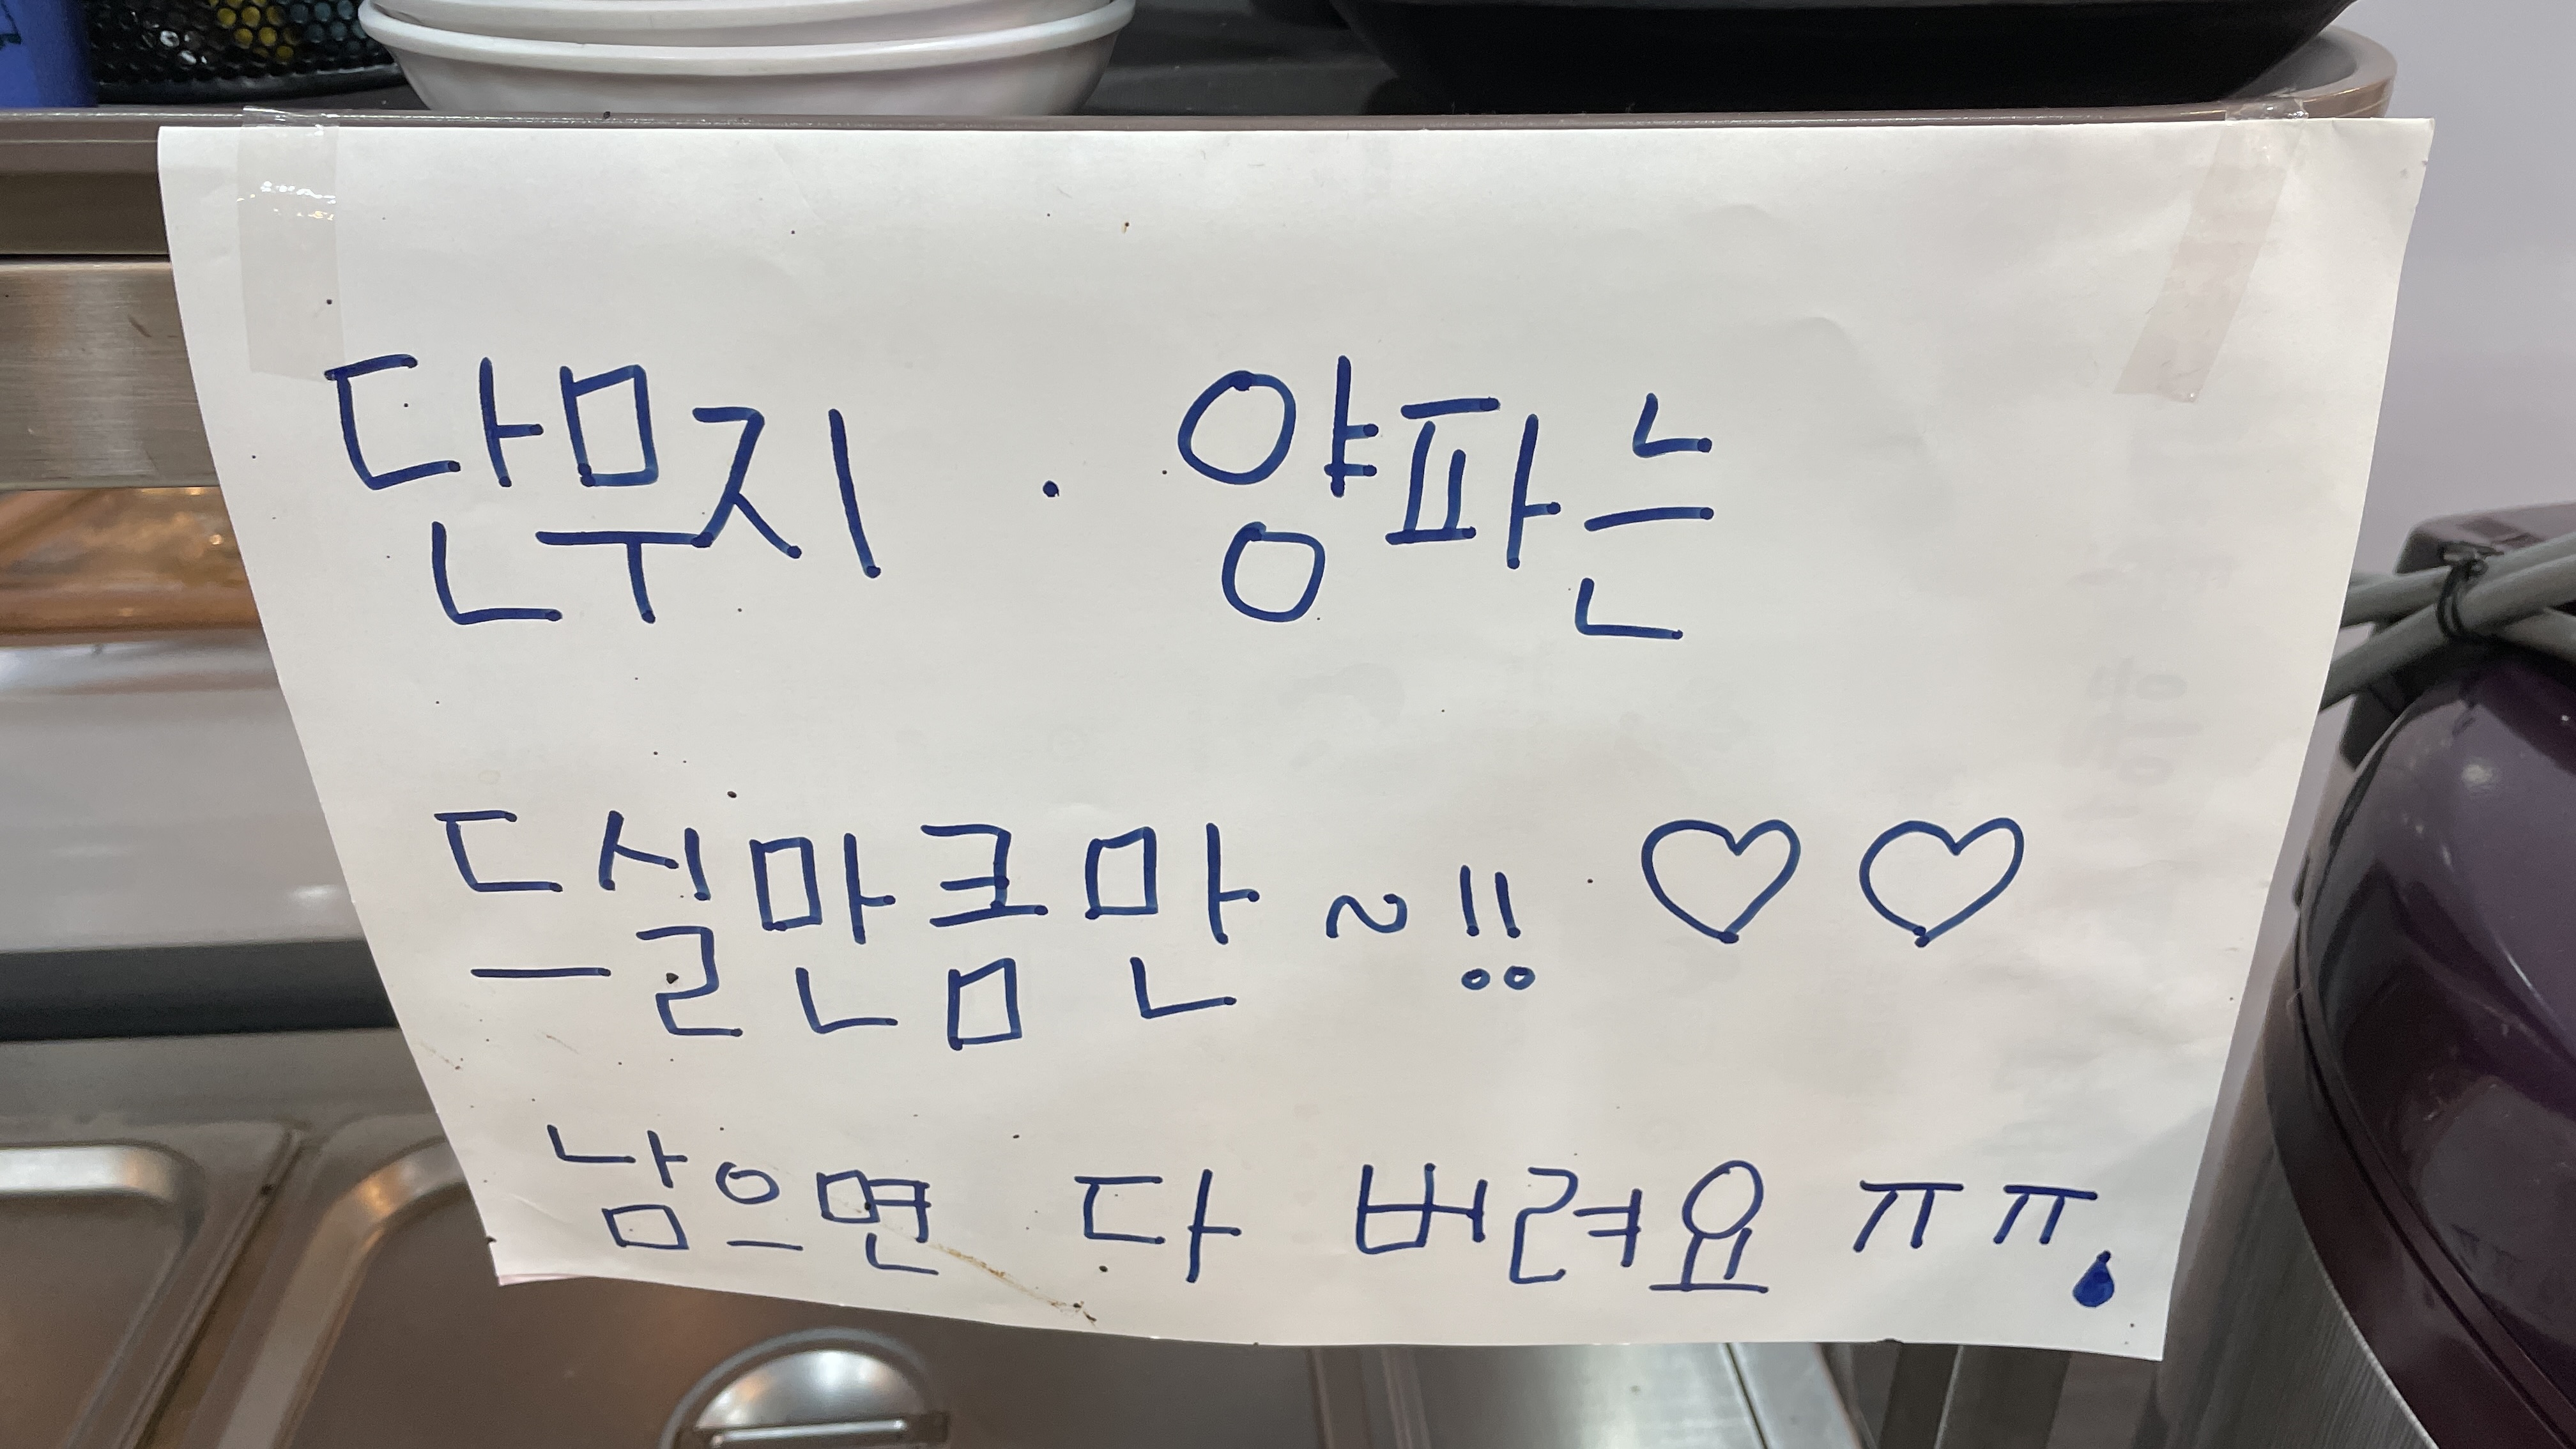 단무지 · 양파는
드실만큼만~!! ♡ ♡
남으면 다 버려요 ㅠㅠ